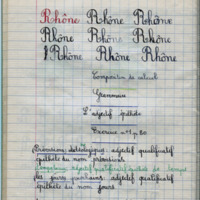 Rhône Rhône Rhône
Rhône Rhône Rhône
Rhône Rhône Rhône
Composition de calcul
Grammaire
L'adjectif épithète
Exercice n° 1 p 80
Prévisions: adjectif qualificatif
épithète du nom prévisions
adjectif qualificatif épithète de
les jours adjectif qualificatif
épithète du nom jours